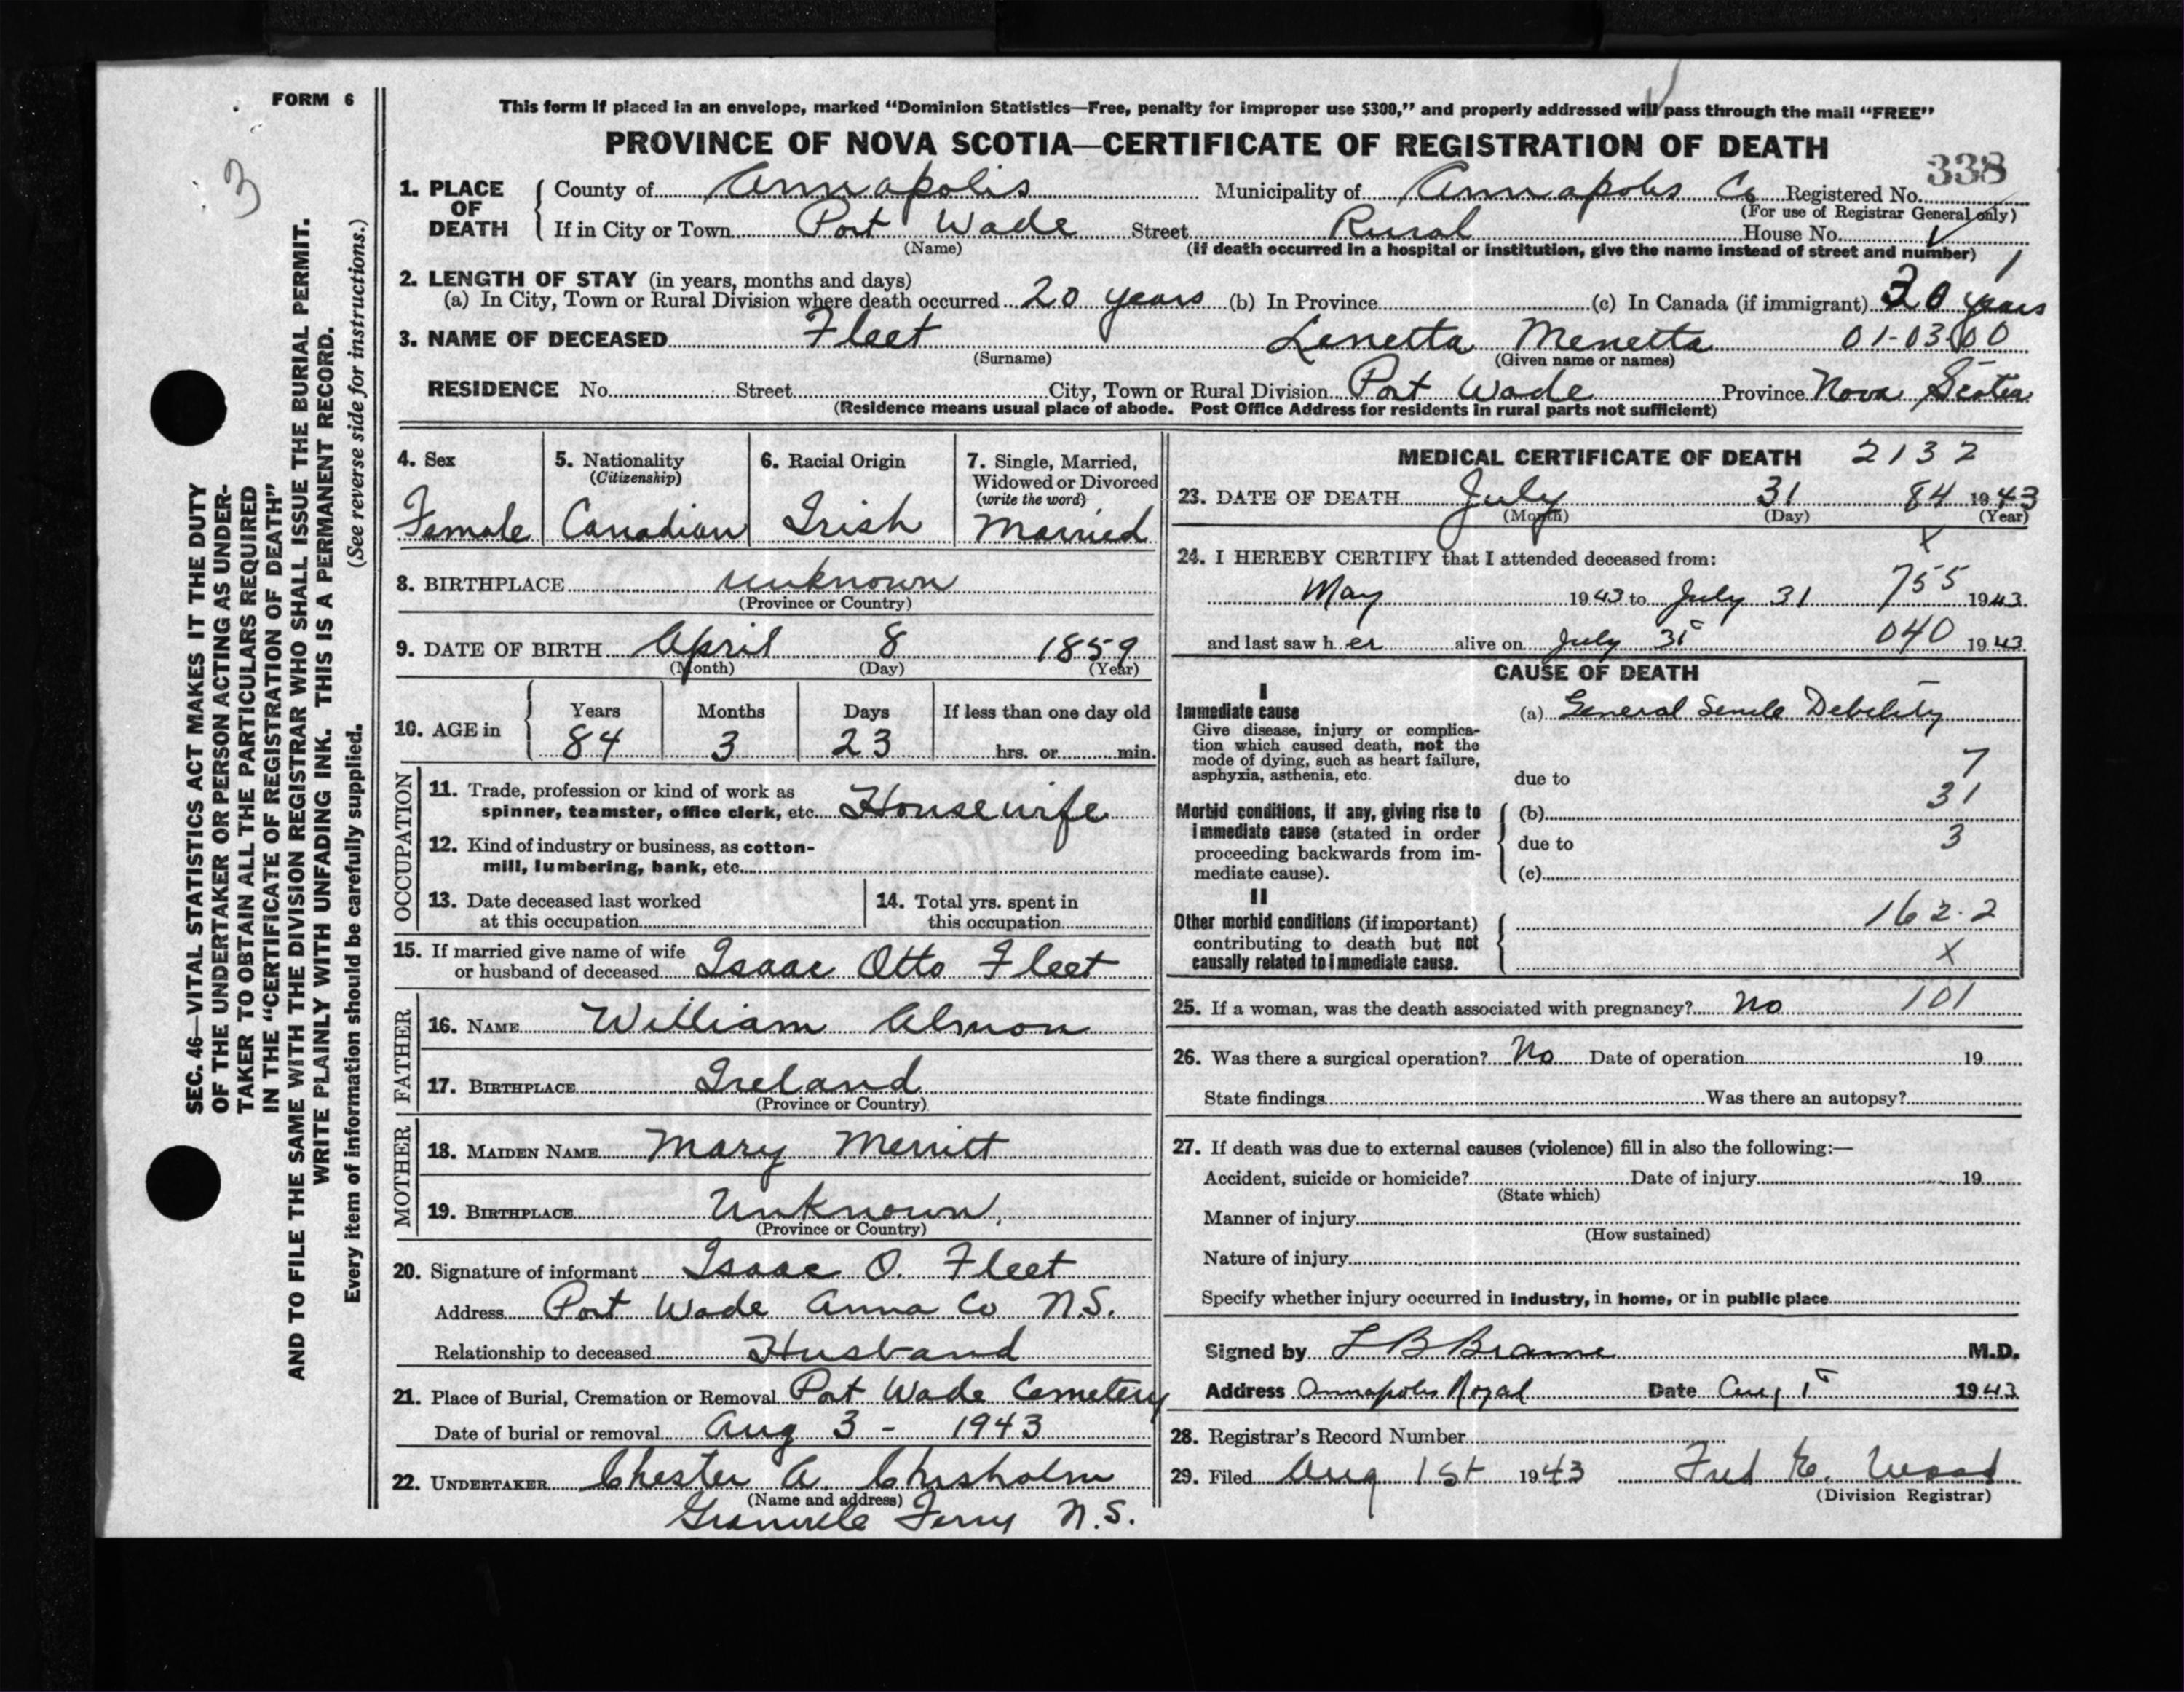 FORM 6
3
SEC. 46—VITAL STATISTICS ACT MAKES IT THE DUTY
OF THE UNDERTAKER OR PERSON ACTING AS UNDER-
TAKER TO OBTAIN ALL THE PARTICULARS REQUIRED
IN THE "CERTIFICATE OF REGISTRATION OF DEATH"
AND TO FILE THE SAME WITH THE DIVISION REGISTRAR WHO SHALL ISSUE THE BURIAL PERMIT.
WRITE PLAINLY WITH UNFADING INK. THIS IS A PERMANENT RECORD.
Every item of information should be carefully supplied. (See reverse side for instructions.)
This form if placed in an envelope, marked "Dominion Statistics—Free, penalty for improper use $300," and properly addressed will pass through the mail "FREE"
PROVINCE OF NOVA SCOTIA—CERTIFICATE OF REGISTRATION OF DEATH
338
1. PLACE OF DEATH County of Annapolis Municipality of Annapolis Co Registered No.
(For use of Registrar General only)
If in City or Town Port Wade Street Rural House No.
(Name) (If death occurred in a hospital or institution, give the name instead of street and number)
2. LENGTH OF STAY (in years, months and days)
(a) In City, Town or Rural Division where death occurred 20 years (b) In Province (c) In Canada (if immigrant) 20 years
3. NAME OF DECEASED Fleet Lenetta Menetta 01-03-00
(Surname) (Given name or names)
RESIDENCE No. Street City, Town or Rural Division Port Wade Province Nova Scotia
(Residence means usual place of abode. Post Office Address for residents in rural parts not sufficient)
4. Sex
Female
5. Nationality
(Citizenship)
Canadian
6. Racial Origin
Irish
7. Single, Married,
Widowed or Divorced
(write the word)
Married
8. BIRTHPLACE unknown
(Province or Country)
9. DATE OF BIRTH April 8 1859
(Month) (Day) (Year)
10. AGE in Years Months Days If less than one day old
84 3 23 hrs. or min.
OCCUPATION
11. Trade, profession or kind of work as
spinner, teamster, office clerk, etc. Housewife
12. Kind of industry or business, as cotton-
mill, lumbering, bank, etc.
13. Date deceased last worked
at this occupation
14. Total yrs. spent in
this occupation
15. If married give name of wife
or husband of deceased Isaac Otto Fleet
FATHER
16. NAME William Almon
17. BIRTHPLACE Ireland
(Province or Country)
MOTHER
18. MAIDEN NAME Mary Merritt
19. BIRTHPLACE Unknown.
(Province or Country)
20. Signature of informant Isaac O. Fleet
Address Port Wade Anna Co N.S.
Relationship to deceased Husband
21. Place of Burial, Cremation or Removal Port Wade Cemetery
Date of burial or removal Aug 3 - 1943
22. UNDERTAKER Chester A. Chisholm
(Name and address)
Granville Ferry N.S.
MEDICAL CERTIFICATE OF DEATH 2132
23. DATE OF DEATH July 31 84 1943
(Month) (Day) (Year)
X
24. I HEREBY CERTIFY that I attended deceased from:
May 1943 to July 31 755 1943
and last saw her alive on July 31st 040 1943
CAUSE OF DEATH
I
Immediate cause
Give disease, injury or complica-
tion which caused death, not the
mode of dying, such as heart failure,
asphyxia, asthenia, etc.
(a) General Senile Debility
due to 7
31
Morbid conditions, if any, giving rise to
immediate cause (stated in order
proceeding backwards from im-
mediate cause).
(b)
due to 3
(c)
II
Other morbid conditions (if important)
contributing to death but not
causally related to immediate cause.
162.2
X
25. If a woman, was the death associated with pregnancy? No 101
26. Was there a surgical operation? No Date of operation 19
State findings Was there an autopsy?
27. If death was due to external causes (violence) fill in also the following:—
Accident, suicide or homicide? Date of injury 19
(State which)
Manner of injury
(How sustained)
Nature of injury
Specify whether injury occurred in industry, in home, or in public place
Signed by L B Brame M.D.
Address Annapolis Royal Date Aug 1st 1943
28. Registrar's Record Number
29. Filed Aug 1st 1943 Fred E. Wood
(Division Registrar)